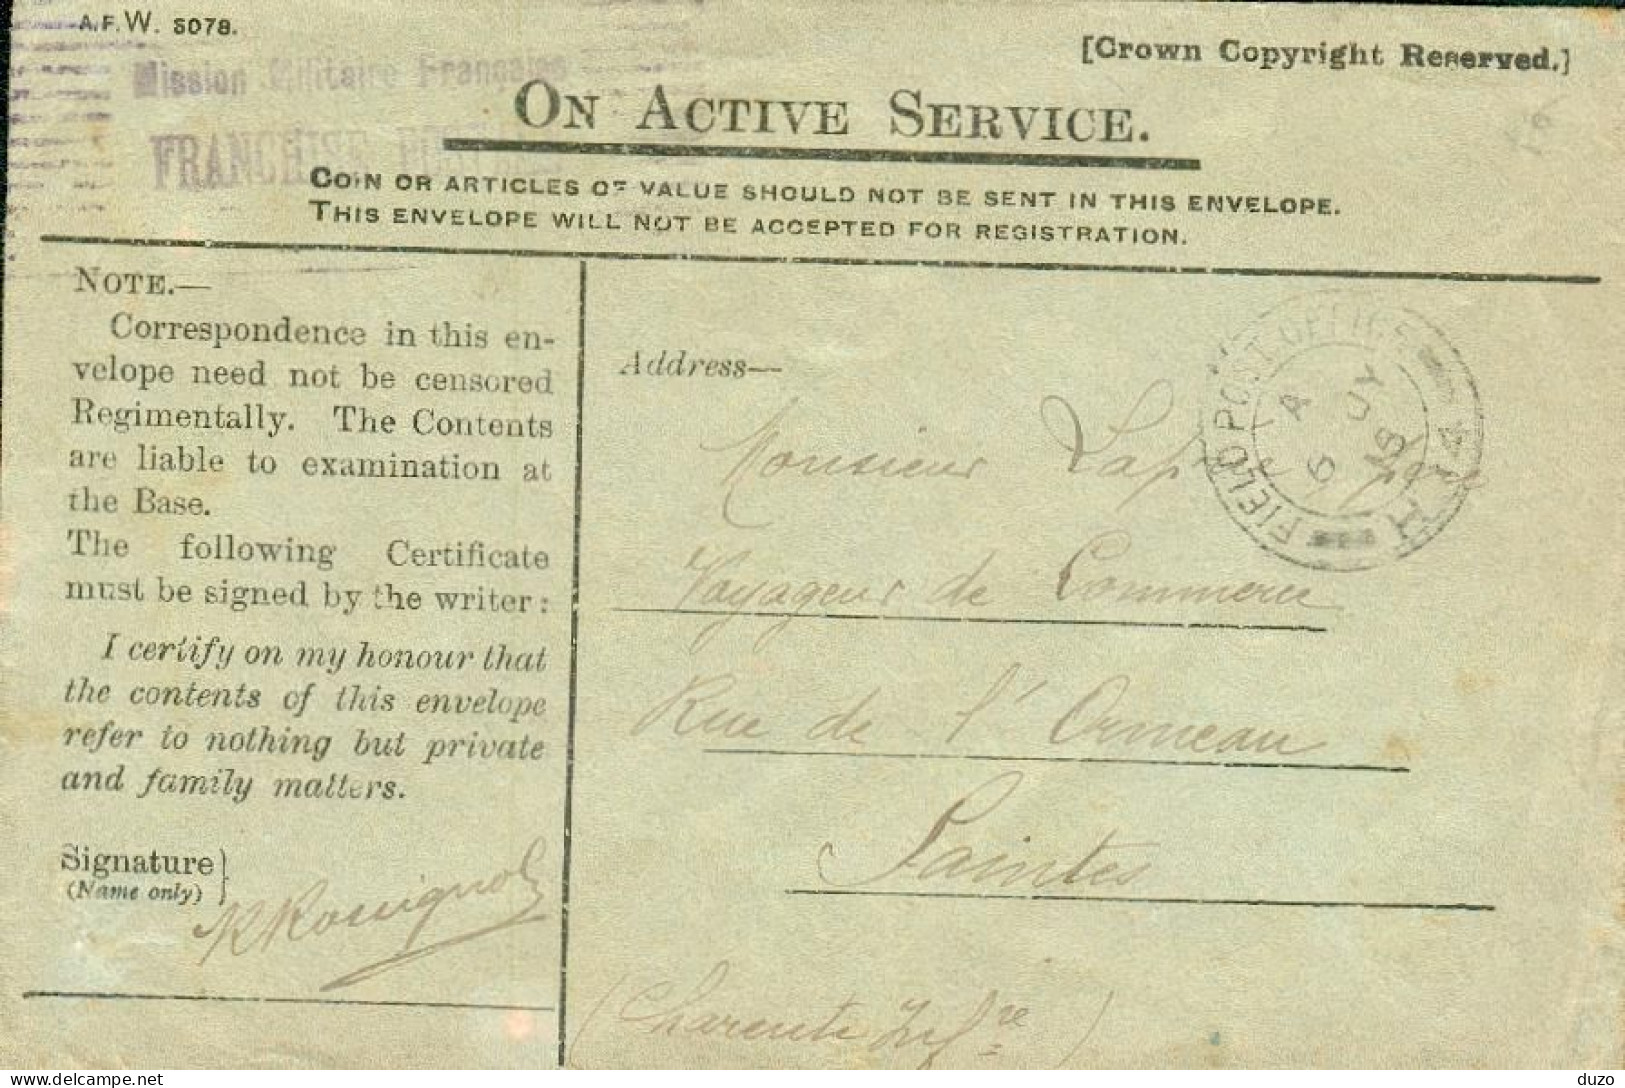 A.F.W. 3078.
[Crown Copyright Reserved.]
Mission Militaire Française
FRANCHISE POSTALE
ON ACTIVE SERVICE.
COIN OR ARTICLES OF VALUE SHOULD NOT BE SENT IN THIS ENVELOPE.
THIS ENVELOPE WILL NOT BE ACCEPTED FOR REGISTRATION.
NOTE.—
Correspondence in this en-
velope need not be censored
Regimentally. The Contents
are liable to examination at
the Base.
The following Certificate
must be signed by the writer:
I certify on my honour that
the contents of this envelope
refer to nothing but private
and family matters.
Signature
(Name only)
Rossignol
Address—
Monsieur
Voyageur de Commerce
Rue de l'Ormeau
Saintes
(Charente Infre)
FIELD POST OFFICE
A
6 JY
18
H 14
delcampe.net
duzo